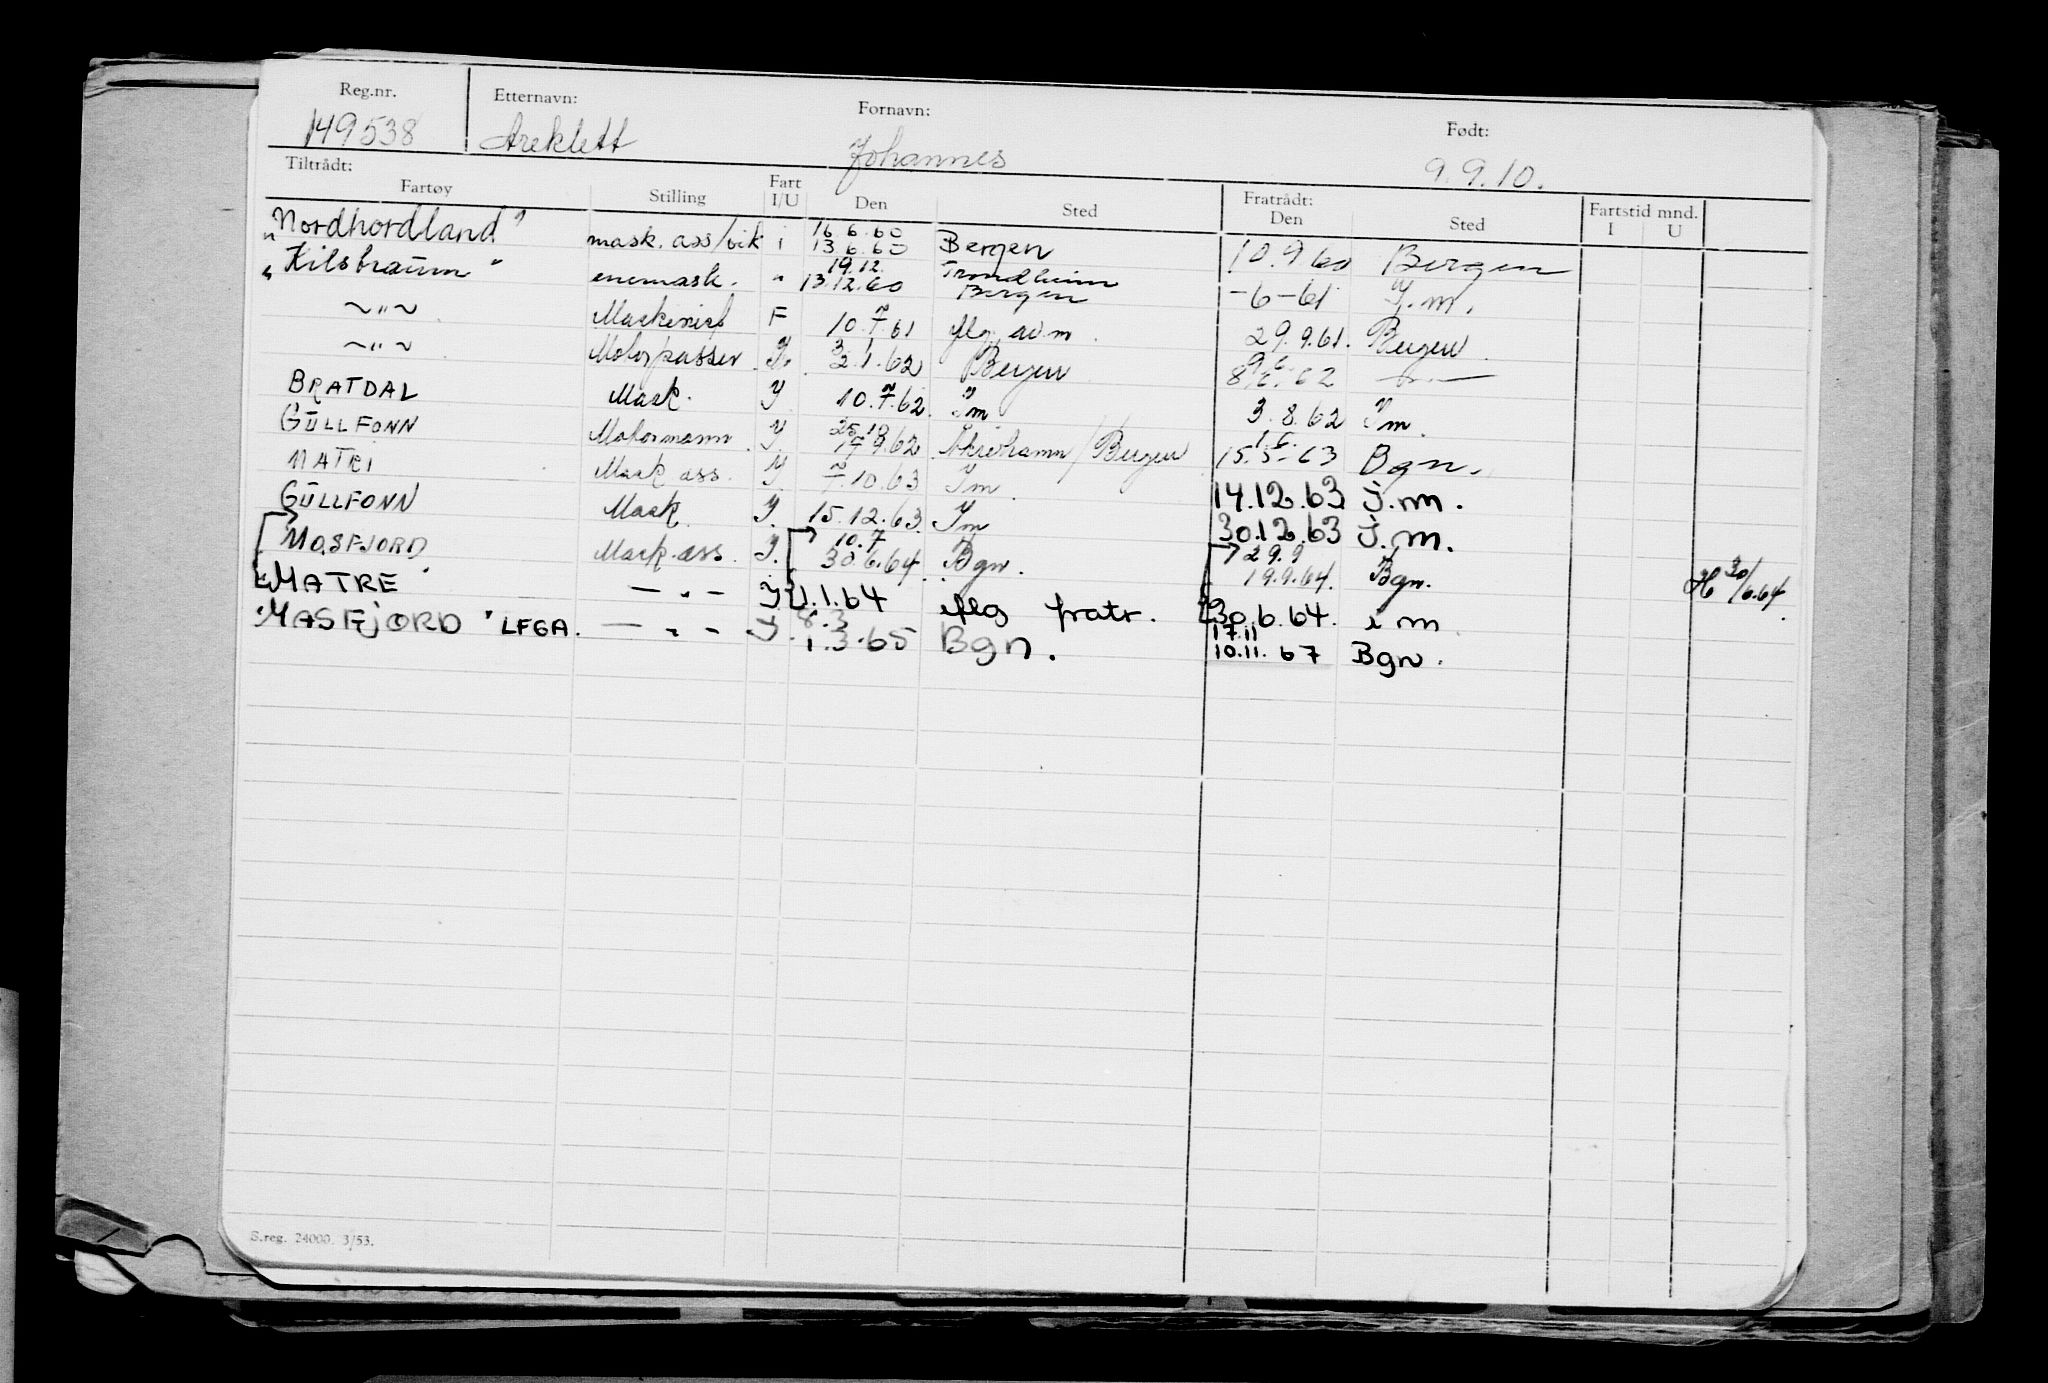 Reg.nr. Etternavn: Fornavn: Født:
149538 Areklett Johannes 9.9.10.
Tiltrådt: Fratrådt: Fartstid mnd.
Fartøy Stilling Fart I/U Den Sted Den Sted I U
16 6.60
"Nordhordland" mask. ass/vik i 13 6.60 Bergen 10.9 60 Bergen
19.12. Trondheim
"Kilstraum" enemask. " 13.12.60 Bergen -6-61 I.m.
~"~ Maskinist F 10.7.61 flg. adm. 29.9.61. Bergen
3 1 9 6
~"~ Motorpasser I. 2.1.62 Bergen 8.6.62 —"—
BRATDAL Mask. I 10.7.62. Im 3.8.62 Im.
25.10 1.6.
GULLFONN Motormann I. 17 9.62 Åkrehamn/Bergen 15.5-63 Bgn.
MATRE Mask ass. I 7.10.63 Im. 14.12.63 i.m.
GULLFONN Mask. I. 15.12.63. Im 30.12.63 I.m.
10.7 29.9
MASFJORD Mask-ass. I. 30.6.64. Bgn. 19.9.64. Bgn. H 30/6.64.
MATRE — " — I 1.1.64 iflg fratr. 30.6.64. i m
8.3 17.11
"MASFJORD" LFGA. — " — I. 1.3.65 Bgn. 10.11.67 Bgn.
S.reg. 24000. 3/53.